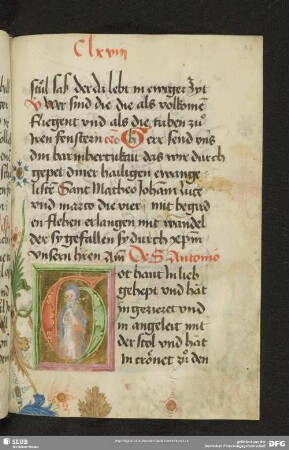 Clxviii
stuͦl sass der da lebt in ewiger zyt
V Wer sind die die als volkomē
fliegent und als die tuben zuͦ
iren fenstern oro Herr send uns
din barmhertzikait das wir durch
gepet diner hailigen ewange
liste Sant Matheo Johañi luce
und marco die vier mit begird
en flehen erlangen mit wandel
der sy gefallen sy durch xp̄m
unsern hren Am De S Antonio
Got haut In lieb
gehept und hat
in gezieret und
in angeleit mit
der stol und hat
in croͤnet zuͦ den
SLUB
DFG